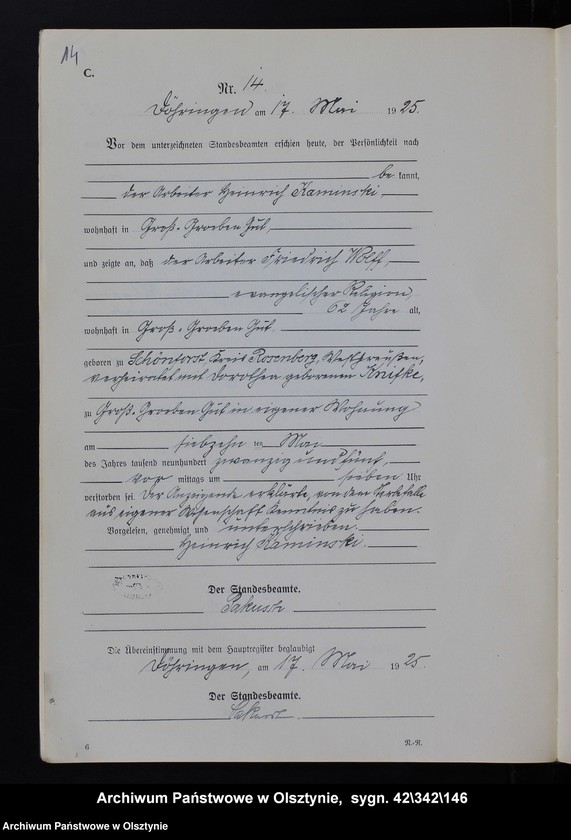 14
C.
Nr. 14.
Döhringen am 17. Mai 1925.
Vor dem unterzeichneten Standesbeamten erschien heute, der Persönlichkeit nach
be kannt,
der Arbeiter Heinrich Kaminski
wohnhaft in Groß-Groeben Gut,
und zeigte an, daß der Arbeiter Friedrich Wolff,
evangelischer Religion,
62 Jahre alt,
wohnhaft in Groß-Groeben Gut
geboren zu Schönforst, Kreis Rosenberg, Westpreußen,
verheiratet mit Dorothea geborenen Knifke,
zu Groß-Groeben Gut in eigener Wohnung
am siebzehn ten Mai
des Jahres tausend neunhundert zwanzig und fünf,
vor mittags um sieben Uhr
verstorben sei. Der Anzeigende erklärte, von dem Sterbefalle
aus eigener Wissenschaft Kenntnis zu haben.
Vorgelesen, genehmigt und unterschrieben.
Heinrich Kaminski.
Der Standesbeamte.
Die Übereinstimmung mit dem Hauptregister beglaubigt
Döhringen, am 17. Mai 1925.
Der Standesbeamte.
6 N.-R.
Archiwum Państwowe w Olsztynie, sygn. 42\342\146
Archiwum Państwowe w Olsztynie